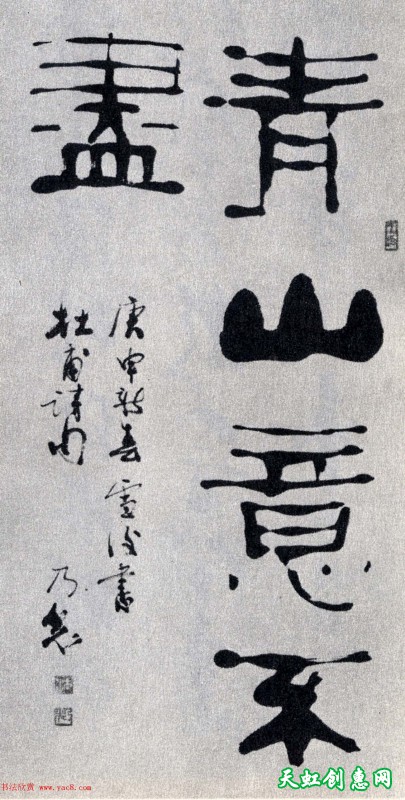 青山意不
盡
庚申新春雪後書
杜甫詩句
书法欣赏 www.yac8.com
天虹创意网